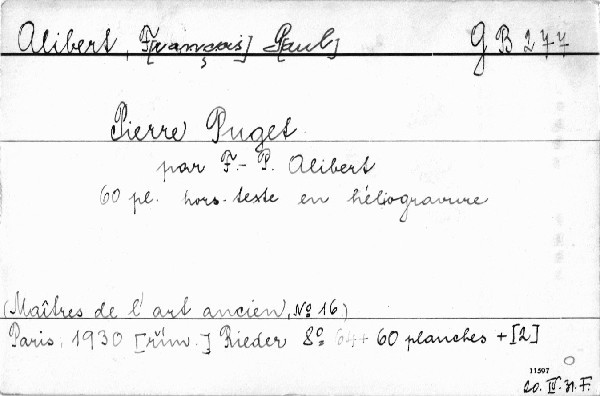 Alibert, F[rançois] P[aul] GB 277
Pierre Puget
par F.-P. Alibert
60 pl. hors-texte en héliogravure
(Maîtres de l'art ancien, No 16)
Paris, 1930 [řím.] Rieder 8o 64 + 60 planches + [2]
11597
20. IV. 31. F.